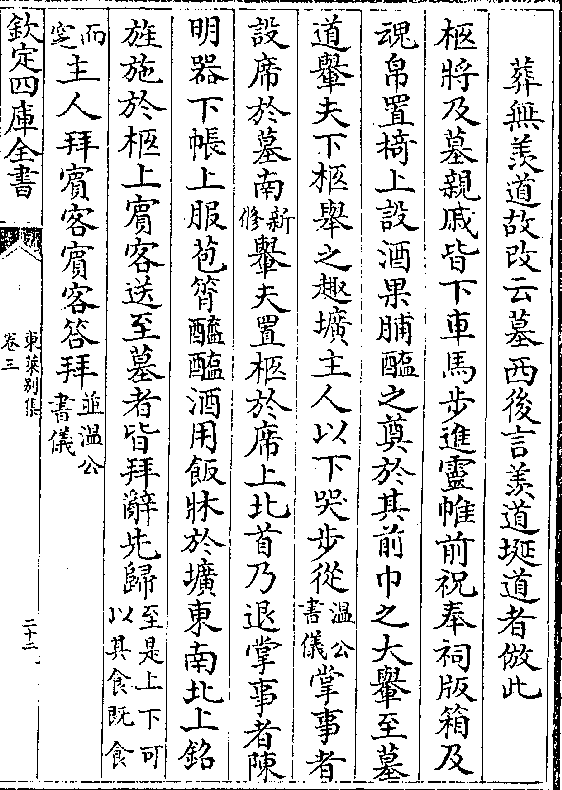 葬無羨道故改云墓西後言羨道埏道者倣此
柩將及墓親戚皆下車馬步進靈帷前祝奉祠版箱及
魂帛置椅上設酒果脯醢之奠於其前巾之大轝至墓
道轝夫下柩舉之趣壙主人以下哭步從溫公書儀掌事者
設席於墓南新修轝夫置柩於席上北首乃退掌事者陳
明器下帳上服苞筲醯醢酒用飯牀於壙東南北上銘
旌施於柩上賓客送至墓者皆拜辭先歸至是上下可以具食既食
而窆主人拜賓客賓客答拜並溫公書儀
欽定四庫全書
東萊別集
卷三
二十二